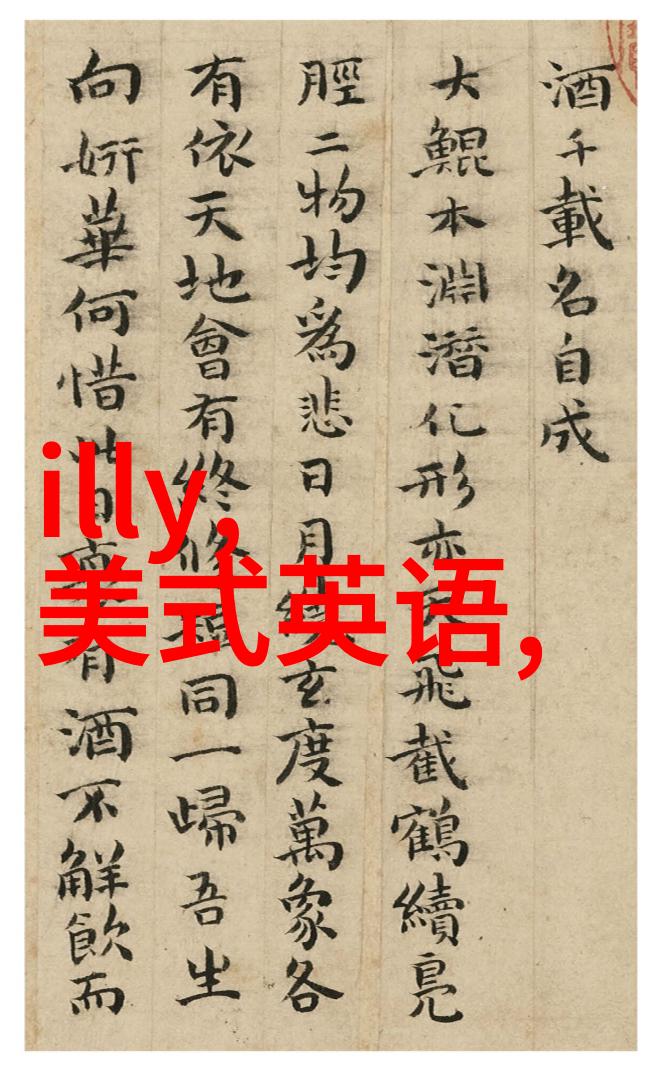 酒千載名自成
大鯤本淵潛化形亦天飛截鶴續鳧
脛二物均爲悲日月玄度萬象各
有依天地會有終修短同一歸吾生
向妍華何惜此日有酒不解飲而
illy,
美式英语,